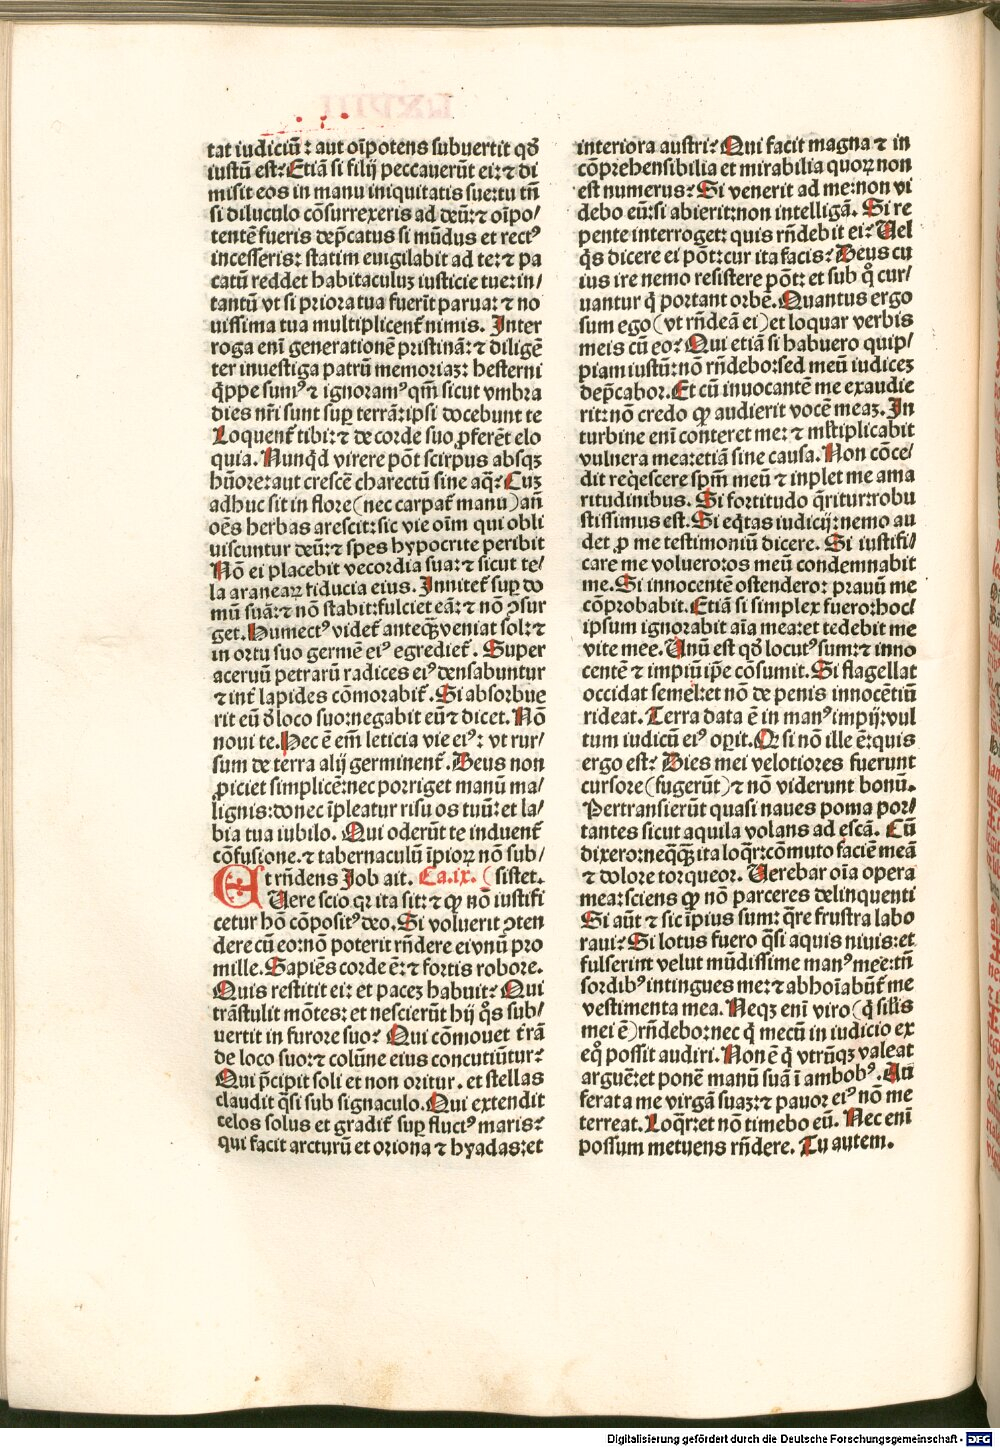 tat iudiciũ: aut oĩpotens subuertit qđ
iustũ est? Etiã si filij peccauerũt ei: ⁊ di
misit eos in manu iniquitatis sue: tu tñ
si diluculo cõsurrexeris ad deũ: ⁊ oĩpo/
tentẽ fueris dep̃catus si mũdus et rectꝰ
incesseris: statim euigilabit ad te: ⁊ pa
catũ reddet habitaculuʒ iusticie tue: in/
tantũ vt si priora tua fuerĩt parua: ⁊ no
uissima tua multiplicent̃ nimis. Inter
roga eni generationẽ pristinã: ⁊ diligẽ
ter inuestiga patrũ memoriaʒ: hesterni
q̃ppe sumꝰ ⁊ ignoramꝰ qm̃ sicut vmbra
dies nr̃i sunt sup terrã: ipsi docebunt te
Loquent̃ tibi: ⁊ de corde suo ꝓferẽt elo
quia. Nunqd̃ virere põt scirpus absqʒ
hũore: aut crescẽ charectũ sine aq̃? Cuʒ
adhuc sit in flore (nec carpat̃ manu) añ
oẽs herbas arescit: sic vie oĩm qui obli
uiscuntur deũ: ⁊ spes hypocrite peribit
Nõ ei placebit vecordia sua: ⁊ sicut te/
la araneaꝝ fiducia eius. Innitet̃ sup do
mũ suã: ⁊ nõ stabit: fulciet eã: ⁊ nõ ꝯsur
get. Humectꝰ videt̃ anteq̃ʒ veniat sol: ⁊
in ortu suo germẽ eiꝰ egrediet̃. Super
aceruũ petrarũ radices eiꝰ densabuntur
⁊ int̃ lapides cõmorabit̃. Si absorbue
rit eũ đ loco suo: negabit eũ ⁊ dicet. Nõ
noui te. Hec ẽ em̃ leticia vie eiꝰ: vt rur/
sum de terra alij germinent̃. Deus non
ꝓiciet simplicẽ: nec porriget manũ ma/
lignis: donec ĩpleatur risu os tuũ: et la/
bia tua iubilo. Qui oderũt te induent̃
cõfusione. ⁊ tabernaculũ ĩpioꝝ nõ sub/
Et rñdens Job ait. Ca.ix. (sistet.
Uere scio qr ita sit: ⁊ ꝙ nõ iustifi
cetur hõ cõpositꝰ deo. Si voluerit ꝯten
dere cũ eo: nõ poterit rñdere ei vnũ pro
mille. Sapiẽs corde ẽ: ⁊ fortis robore.
Quis restitit ei: et paceʒ habuit? Qui
trãstulit mõtes: et nescierũt hij q̊s sub/
uertit in furore suo? Qui cõmouet t̃rã
de loco suo: ⁊ colũne eius concutiũtur?
Qui p̃cipit soli et non oritur. et stellas
claudit q̃si sub signaculo. Qui extendit
celos solus et gradit̃ sup fluctꝰ maris?
qui facit arcturũ et oriona ⁊ hyadas: et
interiora austri? Qui facit magna ⁊ in
cõprehensibilia et mirabilia quoꝝ non
est numerus? Si venerit ad me: non vi
debo eũ: si abierit: non intelligã. Si re
pente interroget: quis rñdebit ei? Uel
q̃s dicere ei põt: cur ita facis? Deus cu
ius ire nemo resistere põt: et sub q̊ cur/
uantur q̃ portant orbẽ. Quantus ergo
sum ego (vt rñdeã ei) et loquar verbis
meis cũ eo? Qui etiã si habuero quip/
piam iustũ: nõ rñdebo: sed meũ iudiceʒ
dep̃cabor. Et cũ inuocantẽ me exaudie
rit: nõ credo ꝙ audierit vocẽ meaʒ. In
turbine eni conteret me: ⁊ mltiplicabit
vulnera mea: etiã sine causa. Non cõce/
dit req̃escere spm̃ meũ ⁊ inplet me ama
ritudinibus. Si fortitudo q̃ritur: robu
stissimus est. Si eq̃tas iudicij: nemo au
det ꝓ me testimoniũ dicere. Si iustifi/
care me voluero: os meũ condemnabit
me. Si innocentẽ ostendero: prauũ me
cõprobabit. Etiã si simplex fuero: hoc/
ipsum ignorabit aĩa mea: et tedebit me
vite mee. Unũ est qđ locutꝰ sum: ⁊ inno
centẽ ⁊ impiũ ip̃e cõsumit. Si flagellat
occidat semel: et nõ de penis innocẽtiũ
rideat. Terra data ẽ in manꝰ impij: vul
tum iudicũ eiꝰ opit. Q̃ si nõ ille ẽ: quis
ergo est? Dies mei velotiores fuerunt
cursore (fugerũt) ⁊ nõ viderunt bonũ.
Pertransierũt quasi naues poma por/
tantes sicut aquila volans ad escã. Cũ
dixero: neq̃q̃ʒ ita loq̃r: cõmuto faciẽ meã
⁊ dolore torqueor. Uerebar oĩa opera
mea: sciens ꝙ nõ parceres delinquenti
Si aũt ⁊ sic ĩpius sum: q̃re frustra labo
raui? Si lotus fuero q̃si aquis niuis: et
fulserint velut mũdissime manꝰ mee: tñ
sordibꝰ intingues me: ⁊ abhoĩabũt̃ me
vestimenta mea. Neqʒ enĩ viro (q̃ silis̃
mei ẽ) rñdebo: nec q̃ mecũ in iudicio ex
eq̊ possit audiri. Non ẽ q̃ vtrũqʒ valeat
arguẽ: et ponẽ manũ suã ĩ ambobꝰ. Au
ferat a me virgã suaʒ: ⁊ pauor eiꝰ nõ me
terreat. Loq̃r: et nõ timebo eũ. Nec enĩ
possum metuens rñdere. Tu autem.
Digitalisierung gefördert durch die Deutsche Forschungsgemeinschaft - DFG